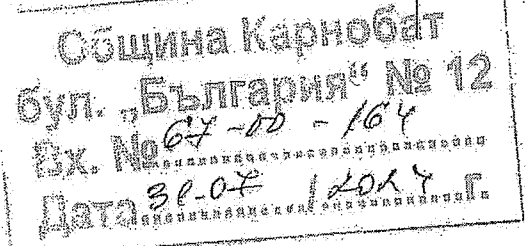 Община Карнобат
бул. „България“ № 12
Вх. № 67-00-164
Дата 30.07 / 2024 г.